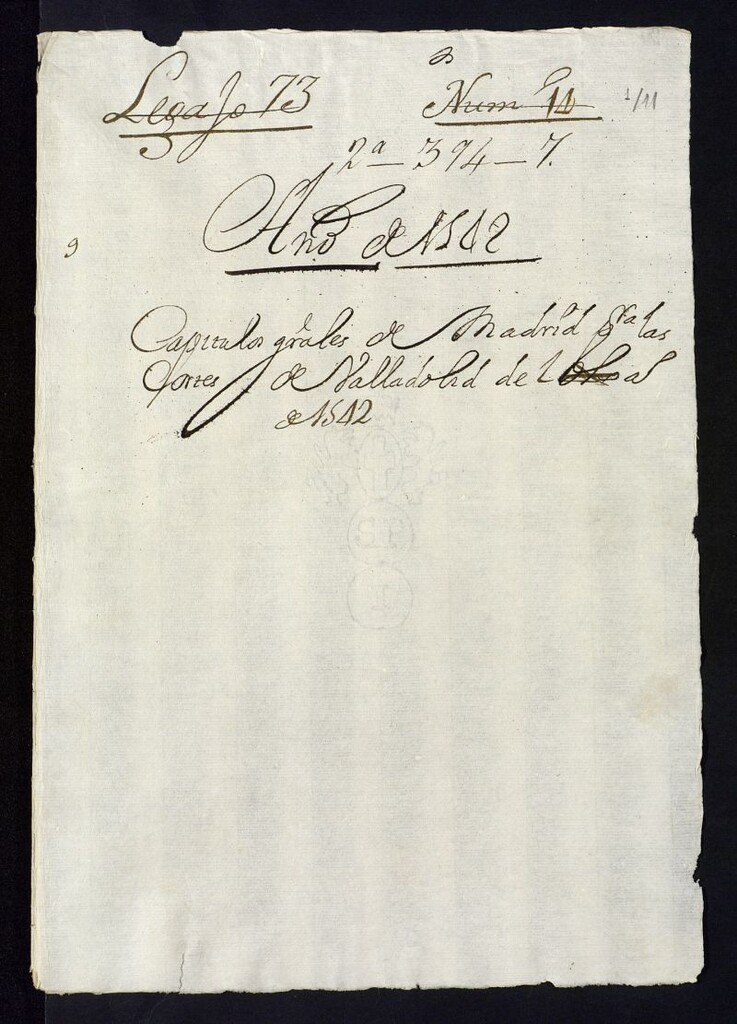 Legajo 73 Num.º 14 1/11
2ª - 394 - 7.
Año de 1542
9
Capitulos grâles de Madrid pra las
Cortes de Valladolid de
de 1542